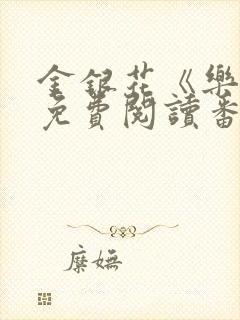 金銀花《樂
免費閱讀番
糜嫵